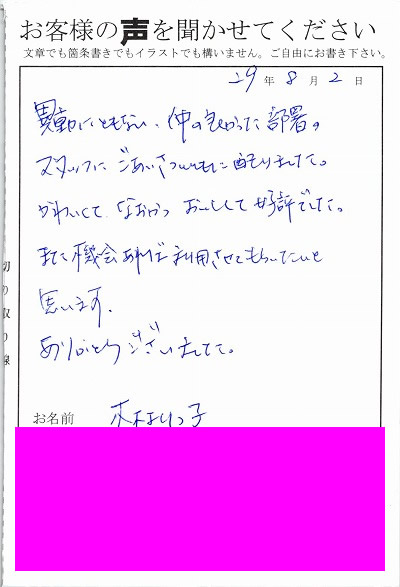 お客様の声を聞かせてください
文章でも箇条書きでもイラストでも構いません。ご自由にお書き下さい。
29年8月2日
異動にともない、仲の良かった部署の
スタッフにごあいさつとともに配りました。
かわいくて、なおかつおいしくて好評でした。
また機会あれば利用させてもらいたいと
思います。
ありがとうございました。
切り取り線
お名前 木村 子